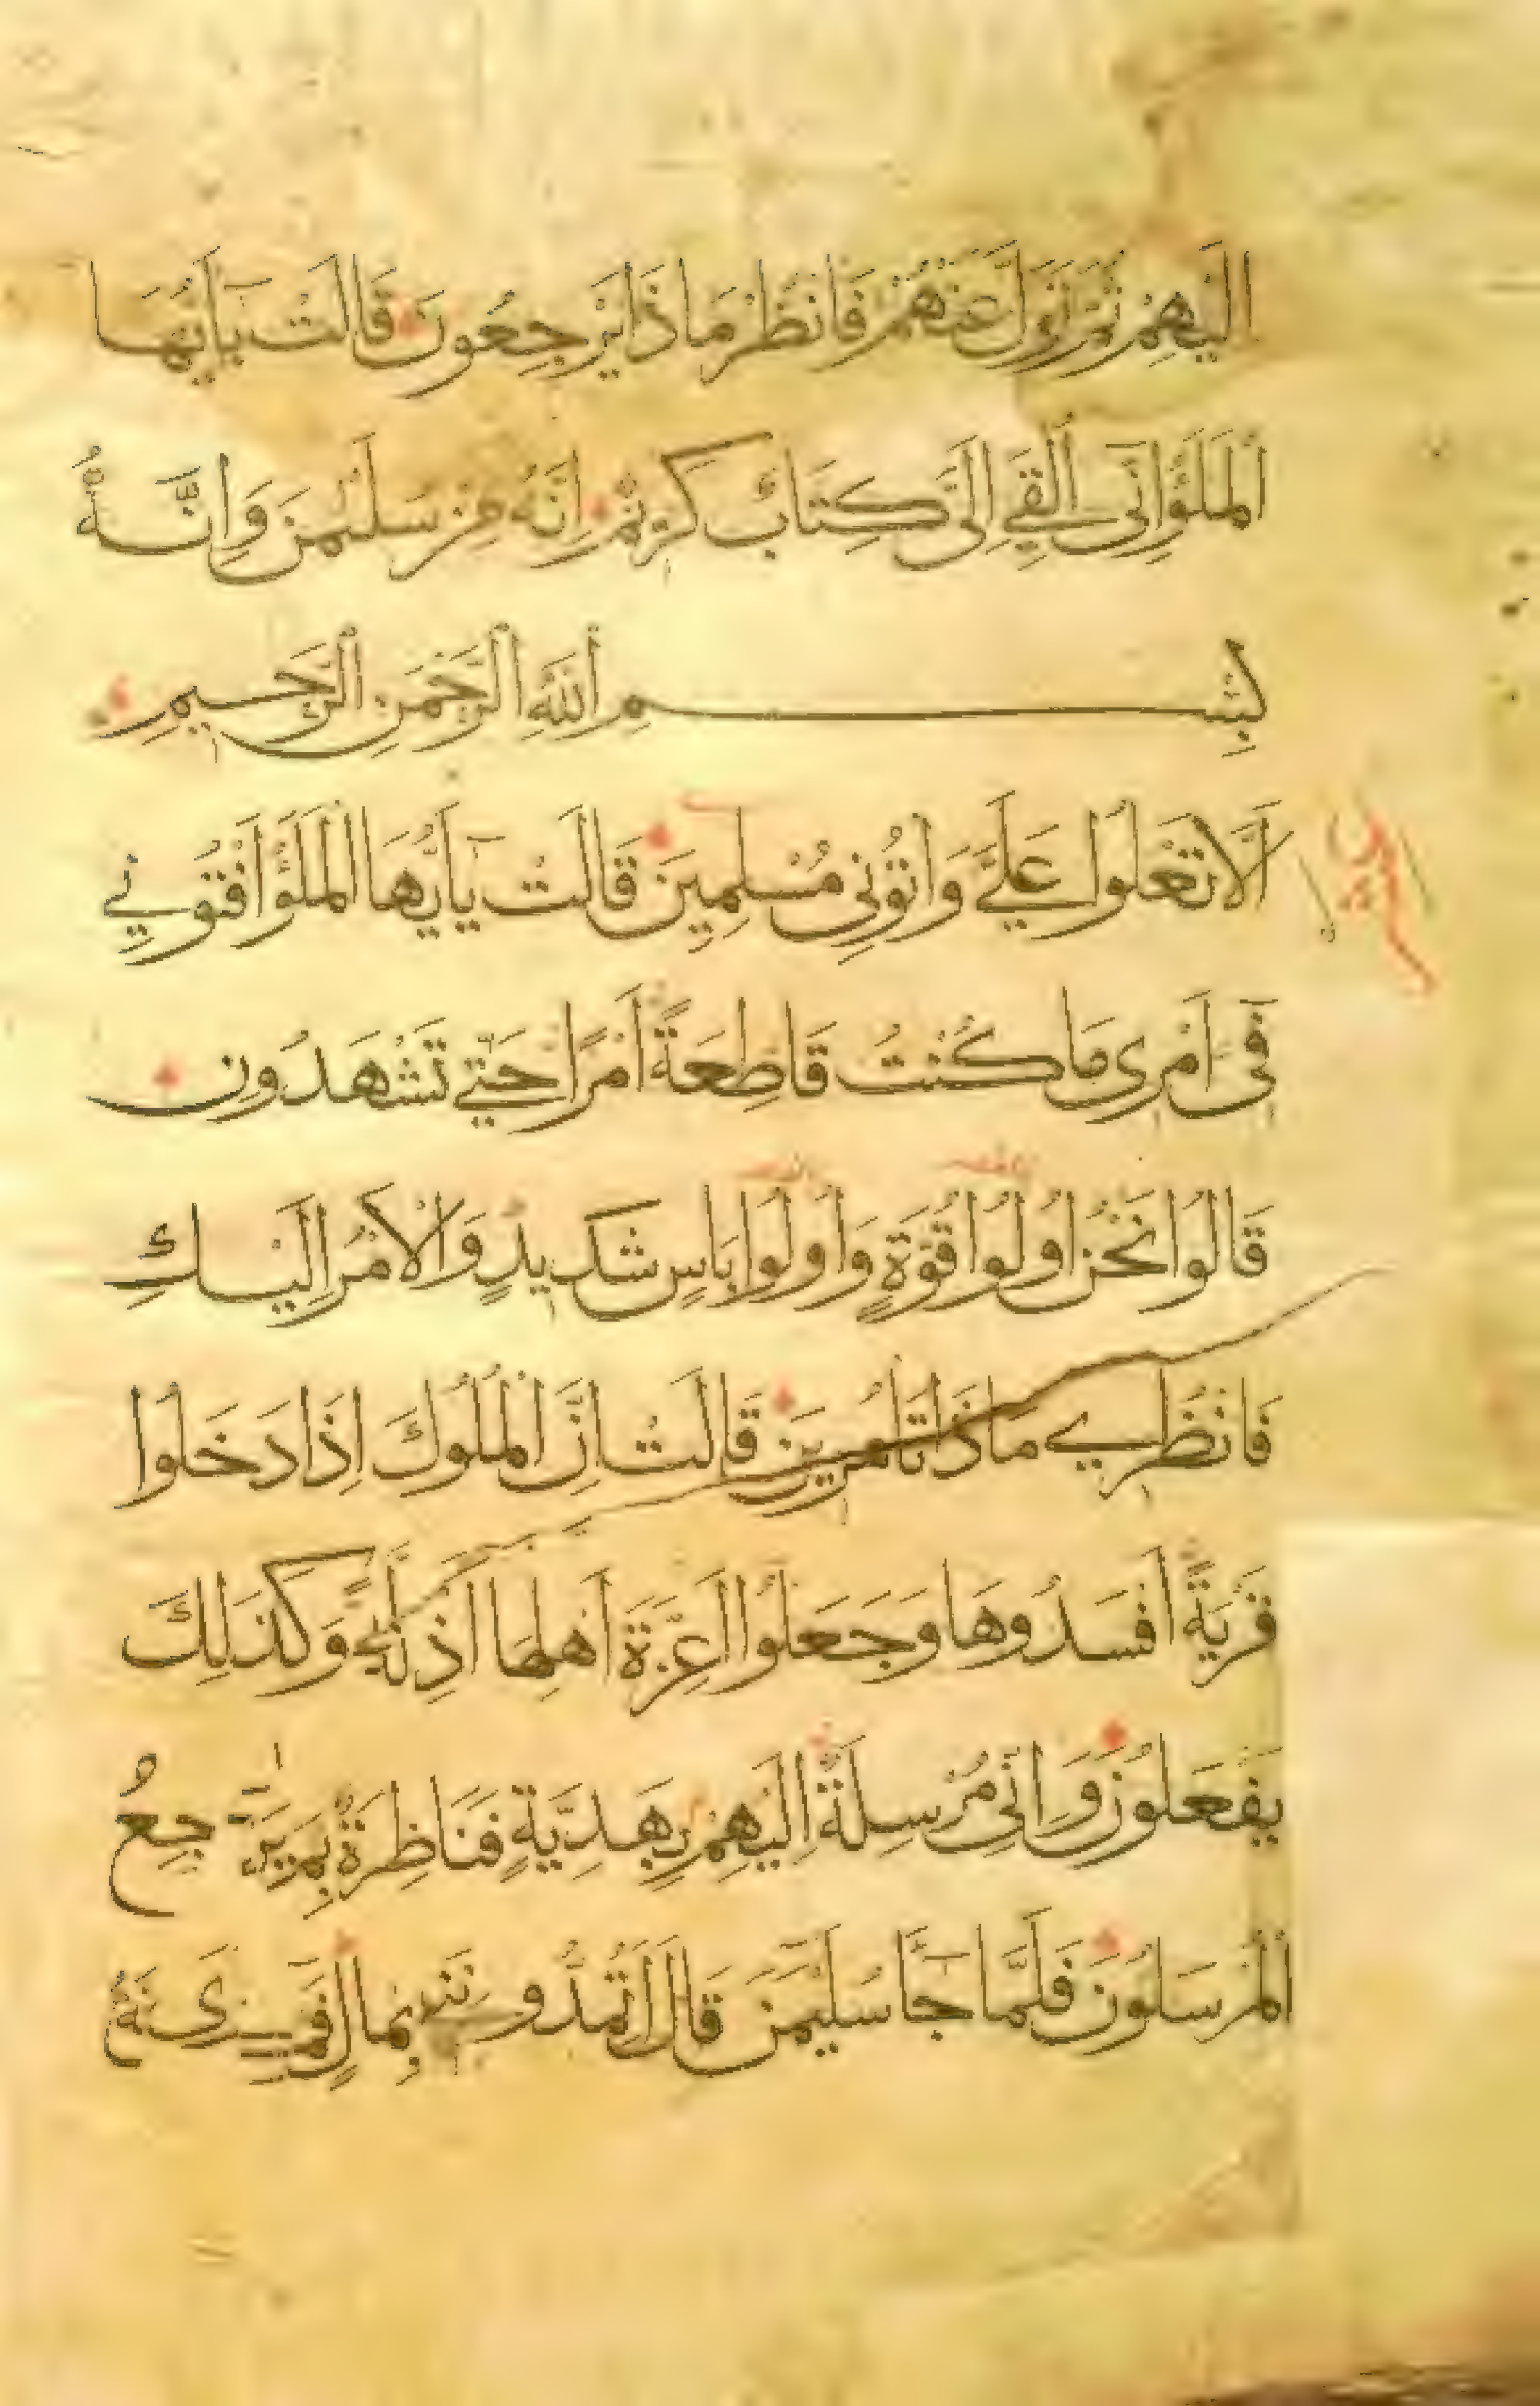 اِلَيْهِمْ ثُمَّ تَوَلَّ عَنْهُمْ فَانْظُرْ مَاذَا يَرْجِعُونَ قَالَتْ يَآ اَيُّهَا
الْمَلَؤُا اِنِّى اُلْقِىَ اِلَىَّ كِتَابٌ كَرِيمٌ اِنَّهُ مِنْ سُلَيْمٰنَ وَاِنَّهُ
بِسْمِ اللّٰهِ الرَّحْمٰنِ الرَّحِيمِ
اَلَّا تَعْلُوا عَلَىَّ وَاْتُونِى مُسْلِمِينَ قَالَتْ يَآ اَيُّهَا الْمَلَؤُا اَفْتُونِي
فِى اَمْرِى مَا كُنْتُ قَاطِعَةً اَمْرًا حَتّٰى تَشْهَدُونِ
قَالُوا نَحْنُ اُولُوا قُوَّةٍ وَاُولُوا بَاْسٍ شَدِيدٍ وَالْاَمْرُ اِلَيْكِ
فَانْظُرِي مَاذَا تَاْمُرِينَ قَالَتْ اِنَّ الْمُلُوكَ اِذَا دَخَلُوا
قَرْيَةً اَفْسَدُوهَا وَجَعَلُوا اَعِزَّةَ اَهْلِهَا اَذِلَّةً وَكَذٰلِكَ
يَفْعَلُونَ وَاِنِّى مُرْسِلَةٌ اِلَيْهِمْ بِهَدِيَّةٍ فَنَاظِرَةٌ بِمَ يَرْجِعُ
الْمُرْسَلُونَ فَلَمَّا جَآءَ سُلَيْمٰنَ قَالَ اَتُمِدُّونَنِ بِمَالٍ فَمَا